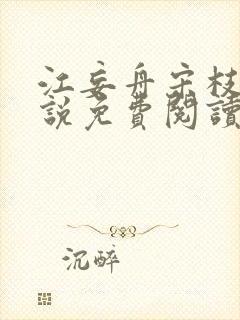 江妄舟宋枝
說免費閱讀
沉醉